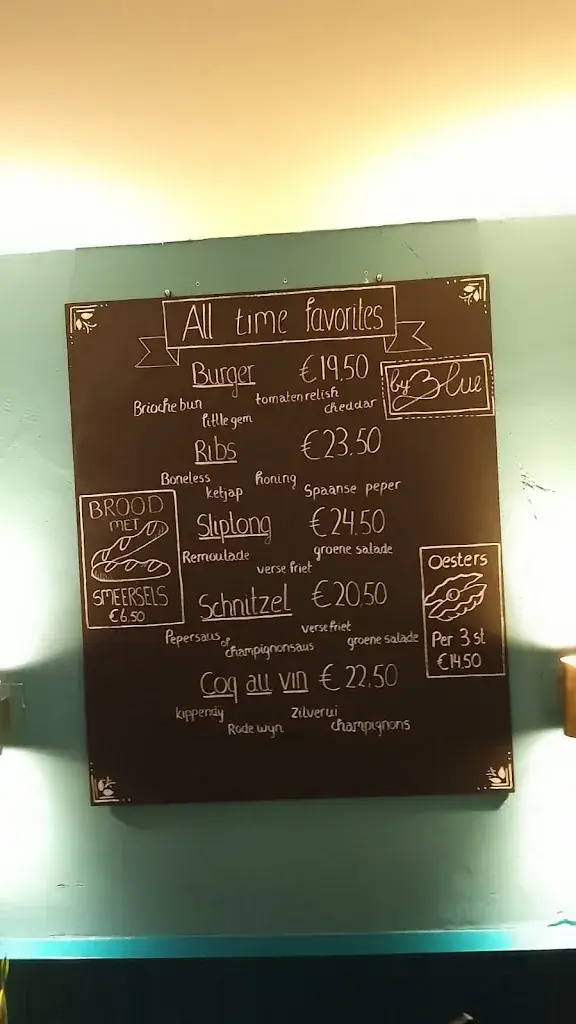 All time favorites
Burger €19,50
by Blue
Brioche bun tomaten relish
little gem cheddar
Ribs €23.50
Boneless honing
ketjap Spaanse peper
BROOD
MET
SMEERSELS
€6.50
Sliptong €24.50
Remoulade groene salade
verse friet
Schnitzel €20,50
Pepersaus of verse friet
champignonsaus groene salade
Oesters
Per 3 st
€14,50
Coq au vin €22,50
kippendij Zilverui
Rode wijn champignons